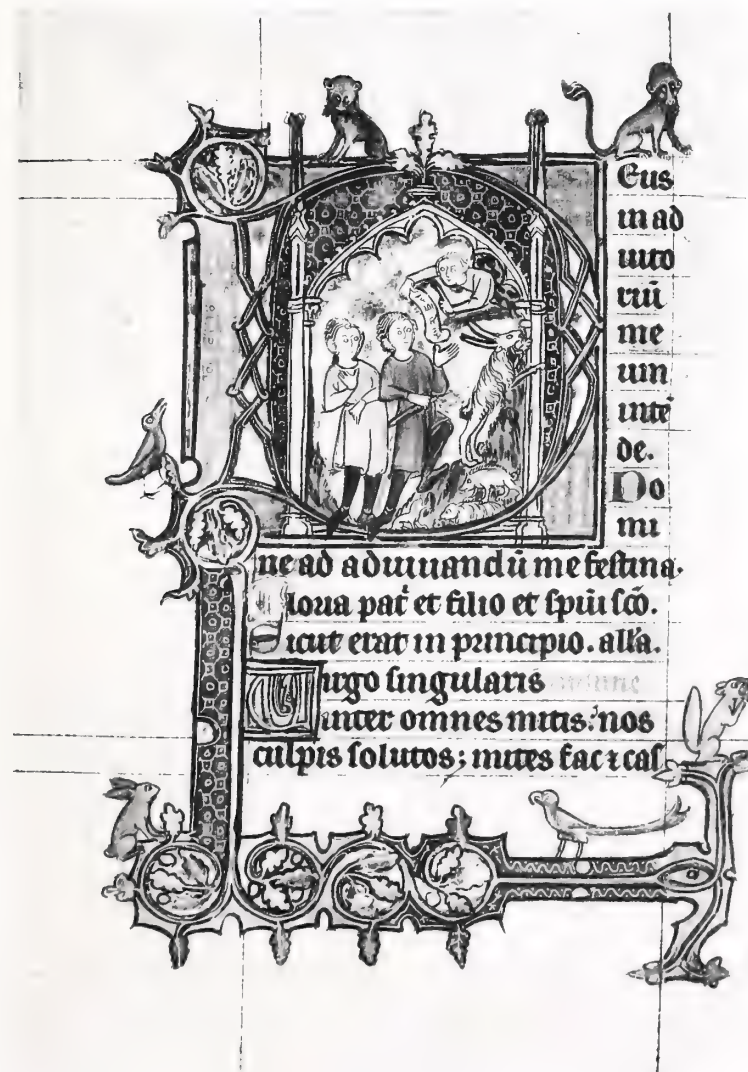 Eus
in ad
iuto
riū
me
um
inte
de.
Do
mi
ne ad adiuuandū me festina.
loria pat̄ et filio et spiū sc̄o.
Sicut erat in principio. all'a.
Uirgo singularis
inter omnes mitis: nos
culpis solutos; mites fac ⁊ cas